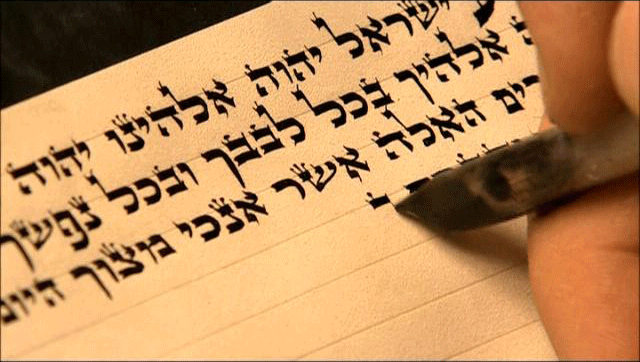 ישראל יהוה אלהינו יהוה
אלהיך בכל לבבך ובכל נפשך
רים האלה אשר אנכי מצוך היום